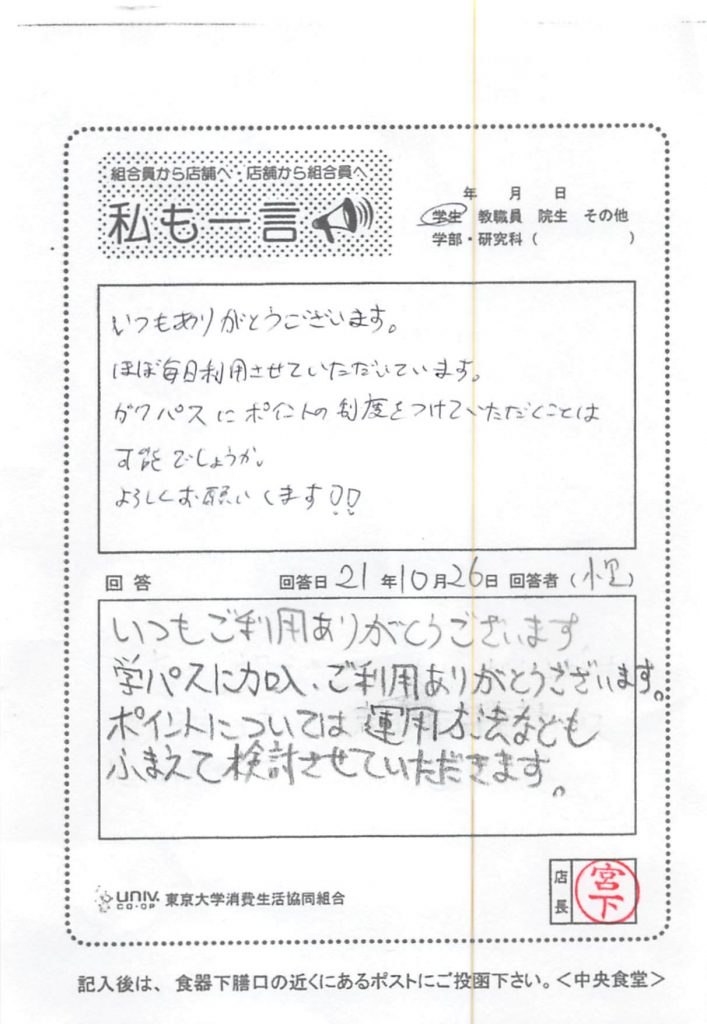 組合員から店舗へ・店舗から組合員へ
私も一言
年 月 日
学生 教職員 院生 その他
学部・研究科( )
いつもありがとうございます。
ほぼ毎日利用させていただいています。
ガクパスにポイントの制度をつけていただくことは
可能でしょうか。
よろしくお願いします!!
回答 回答日 21 年 10 月 26 日 回答者( )
いつもご利用ありがとうございます
学パスに加入、ご利用ありがとうございます。
ポイントについては運用方法なども
ふまえて検討させていただきます。
UNIV. CO-OP 東京大学消費生活協同組合
店長 宮下
記入後は、食器下膳口の近くにあるポストにご投函下さい。<中央食堂>